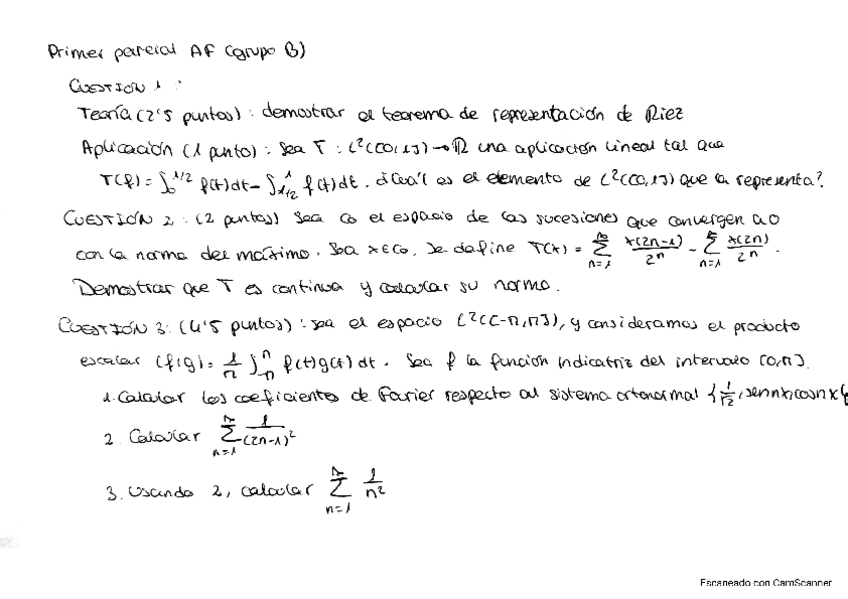 Primer parcial AF (grupo B)
CUESTIÓN 1:
Teoría (2'5 puntos): demostrar el teorema de representación de Riez
Aplicación (1 punto): Sea T: L²([0,1]) → ℝ una aplicación lineal tal que
T(f) = ∫₀^{1/2} f(t)dt - ∫_{1/2}^1 f(t)dt. ¿Cuál es el elemento de L²([0,1]) que la representa?
CUESTIÓN 2: (2 puntos) Sea c₀ el espacio de las sucesiones que convergen a 0
con la norma del máximo. Sea x∈c₀. Se define T(x) = ∑_{n=1}^∞ x(2n-1)/2ⁿ - ∑_{n=1}^∞ x(2n)/2ⁿ.
Demostrar que T es continua y calcular su norma.
CUESTIÓN 3: (4'5 puntos): sea el espacio L²([-π,π]), y consideramos el producto
escalar (f|g) = 1/π ∫_{-π}^π f(t)g(t)dt. Sea f la función indicatriz del intervalo [0,π].
1. Calcular los coeficientes de Fourier respecto al sistema ortonormal {1/√2, sen nx, cos nx}
2. Calcular ∑_{n=1}^∞ 1/(2n-1)²
3. Usando 2, calcular ∑_{n=1}^∞ 1/n²
Escaneado con CamScanner